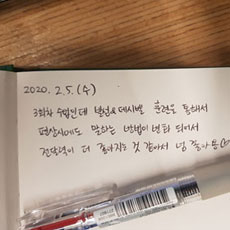 2020. 2.5. (수)
3회차 수업인데 발성&데시벨 훈련을 통해서
평상시에도 말하는 방법이 변화 되어서
전달력이 더 좋아지는 것 같아서 넘 좋아용(^^